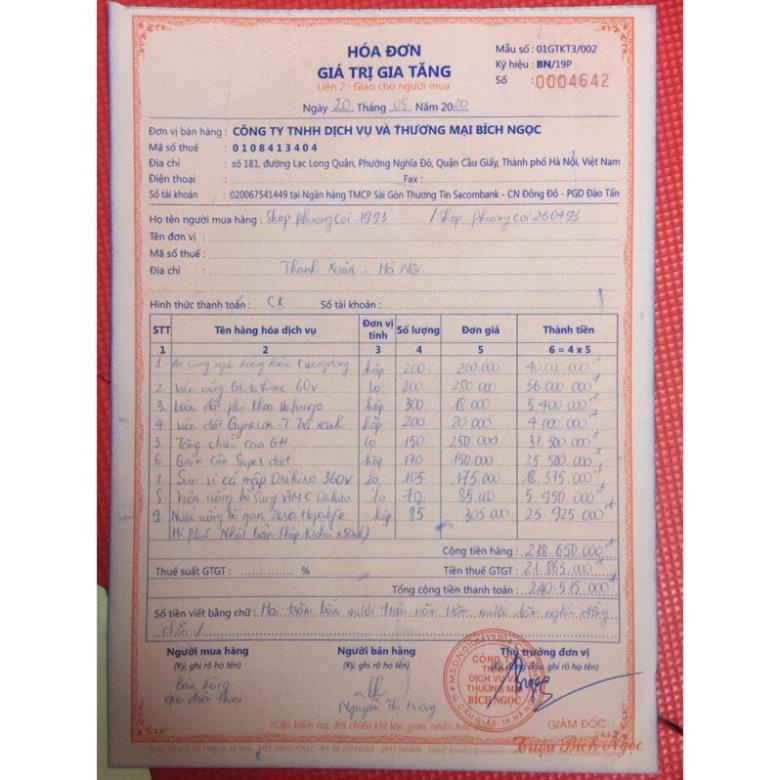 HÓA ĐƠN
GIÁ TRỊ GIA TĂNG
Liên 2: Giao cho người mua
Mẫu số : 01GTKT3/002
Ký hiệu : BN/19P
Số : 0004642
Ngày 20 Tháng 05 Năm 2020
Đơn vị bán hàng : CÔNG TY TNHH DỊCH VỤ VÀ THƯƠNG MẠI BÍCH NGỌC
Mã số thuế : 0108413404
Địa chỉ : số 181, đường Lạc Long Quân, Phường Nghĩa Đô, Quận Cầu Giấy, Thành phố Hà Nội, Việt Nam
Điện thoại : Fax :
Số tài khoản : 020067541449 tại Ngân hàng TMCP Sài Gòn Thương Tín Sacombank - CN Đông Đô - PGD Đào Tấn
Họ tên người mua hàng : Shop phuongcoi 1993 / Shop phuongcoi260493
Tên đơn vị :
Mã số thuế :
Địa chỉ : Thanh Xuân - Hà Nội
Hình thức thanh toán : CK Số tài khoản :
STT Tên hàng hóa dịch vụ Đơn vị tính Số lượng Đơn giá Thành tiền
1 2 3 4 5 6 = 4 x 5
1. An cung hoàng hoàn hộp 200 200.000 40.000.000đ
2. Viên uống 60v lọ 200 280.000 56.000.000đ
3. Viên đặt phụ khoa hộp 300 18.000 5.400.000đ
4. Viên đặt trà xanh hộp 200 20.000 4.000.000đ
5. Tăng chiều cao GH lọ 150 250.000 37.500.000đ
6. Giảm cân Super diet hộp 170 150.000 25.500.000đ
7. Sụn vi cá mập Orihiro 360v lọ 105 175.000 18.375.000đ
8. Viên uống bổ sung lọ 70 85.000 5.950.000đ
9. Nước uống bổ gan Hepalife hộp 85 305.000 25.925.000đ
Nhật Bản (hộp 10 x 50ml)
Cộng tiền hàng : 218.650.000đ
Thuế suất GTGT : % Tiền thuế GTGT : 21.865.000đ
Tổng cộng tiền thanh toán : 240.515.000đ
Số tiền viết bằng chữ : Hai trăm bốn mươi triệu năm trăm mười lăm nghìn đồng
chẵn /
Người mua hàng Người bán hàng Thủ trưởng đơn vị
(Ký, ghi rõ họ tên) (Ký, ghi rõ họ tên) (Ký, đóng dấu, ghi rõ họ tên)
Bán hàng
qua điện thoại
Nguyễn Thị Hường
CÔNG TY
TNHH
DỊCH VỤ VÀ
THƯƠNG MẠI
BÍCH NGỌC
Q. CẦU GIẤY - TP. HÀ NỘI
GIÁM ĐỐC
Triệu Bích Ngọc
(Cần kiểm tra, đối chiếu khi lập, giao, nhận hóa đơn)